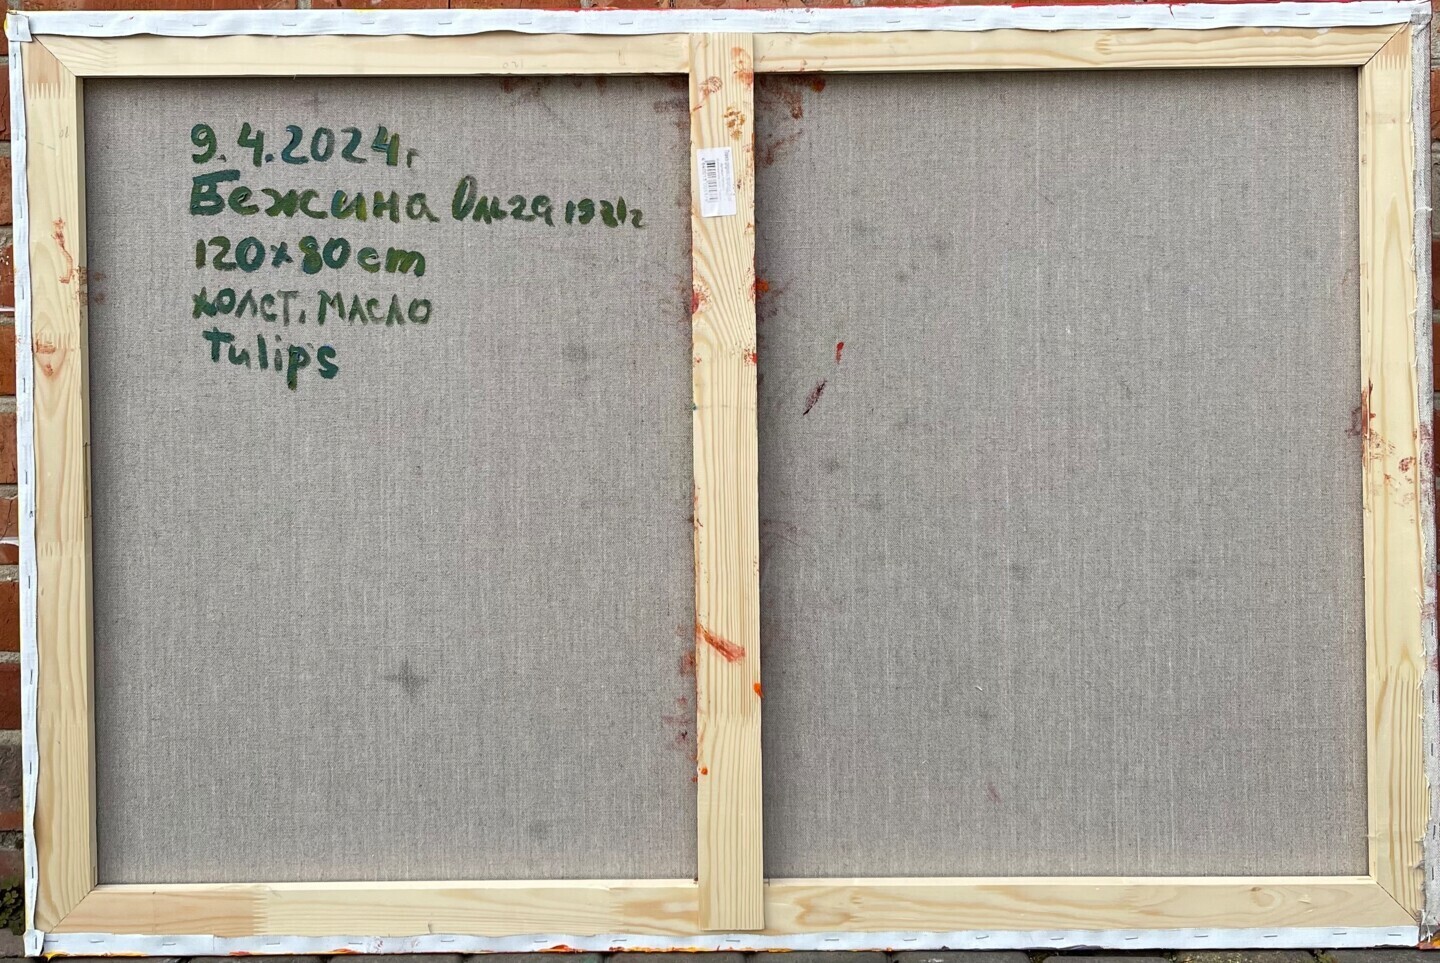 9.4.2024г
Бежина Ольга 1981г
120х80cm
холст, масло
Tulips